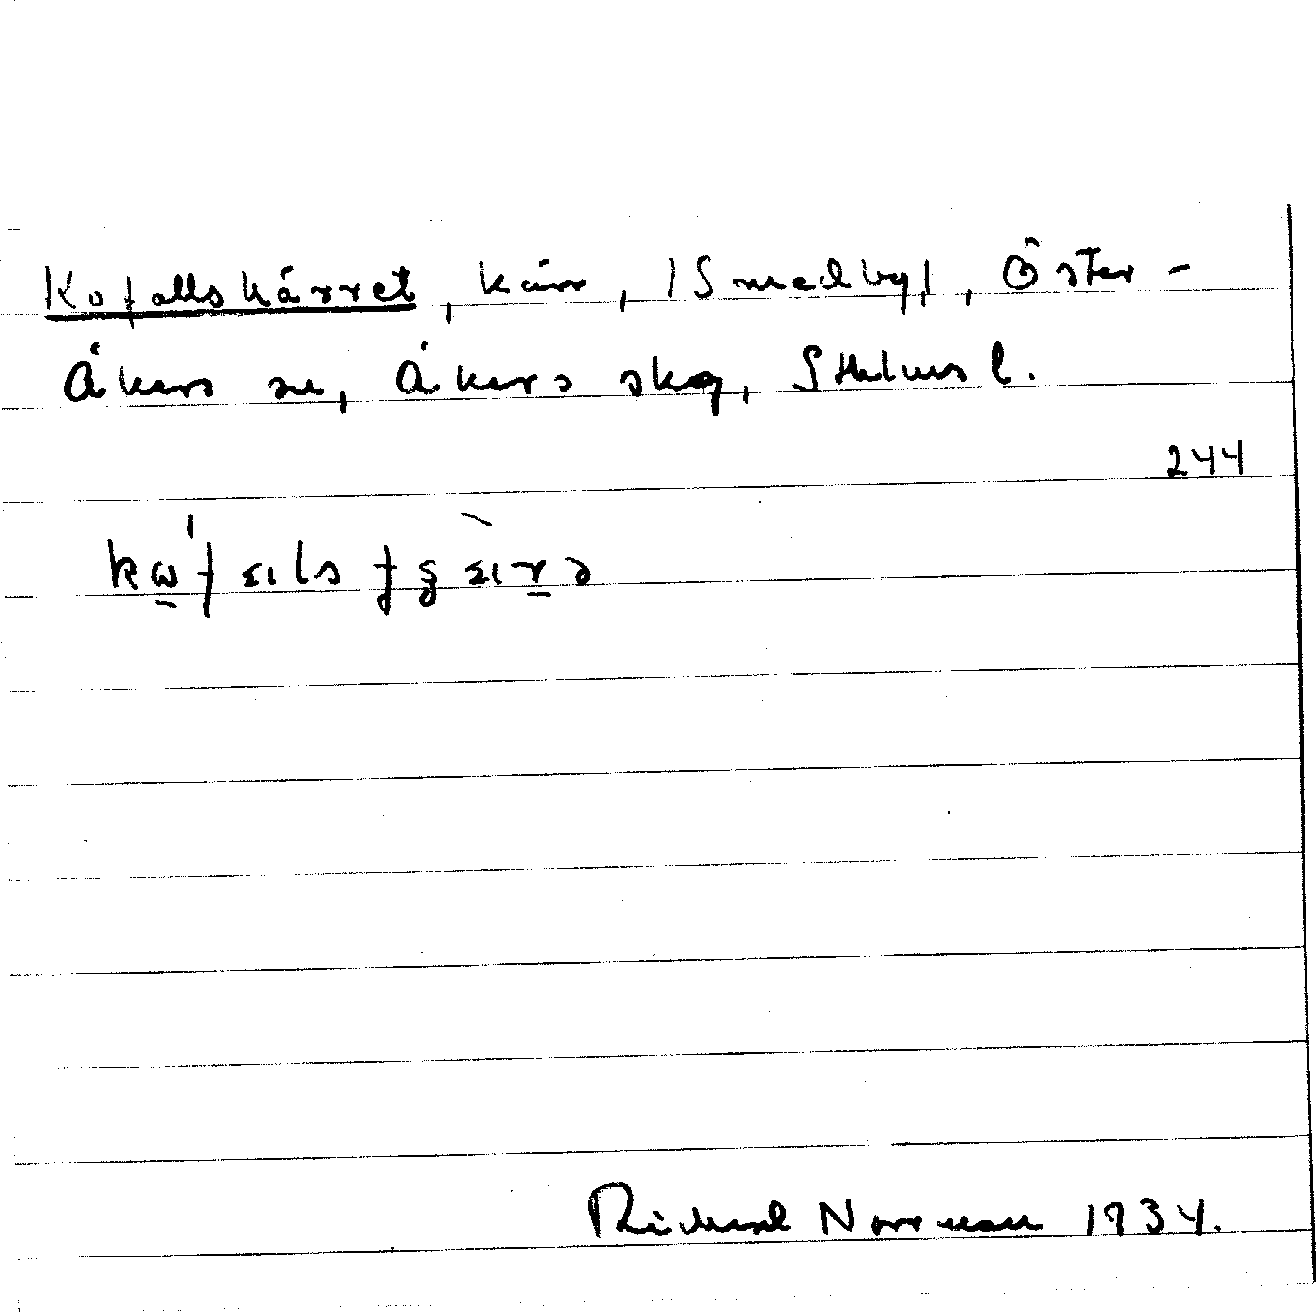 Kofallskärret, kärr, /Smedby/, Öster-
Åkers sn, Åkers skg, Sthlms l.
244
Richard Norrman 1934.